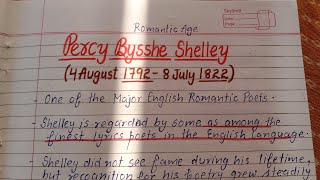 Romantic Age
Percy Bysshe Shelley
(4 August 1792 - 8 July 1822)
- One of the Major English Romantic Poets.
- Shelley is regarded by some as among the
finest lyrics poets in the English language.
- Shelley did not see fame during his lifetime,
but recognition for his poetry grew steadily